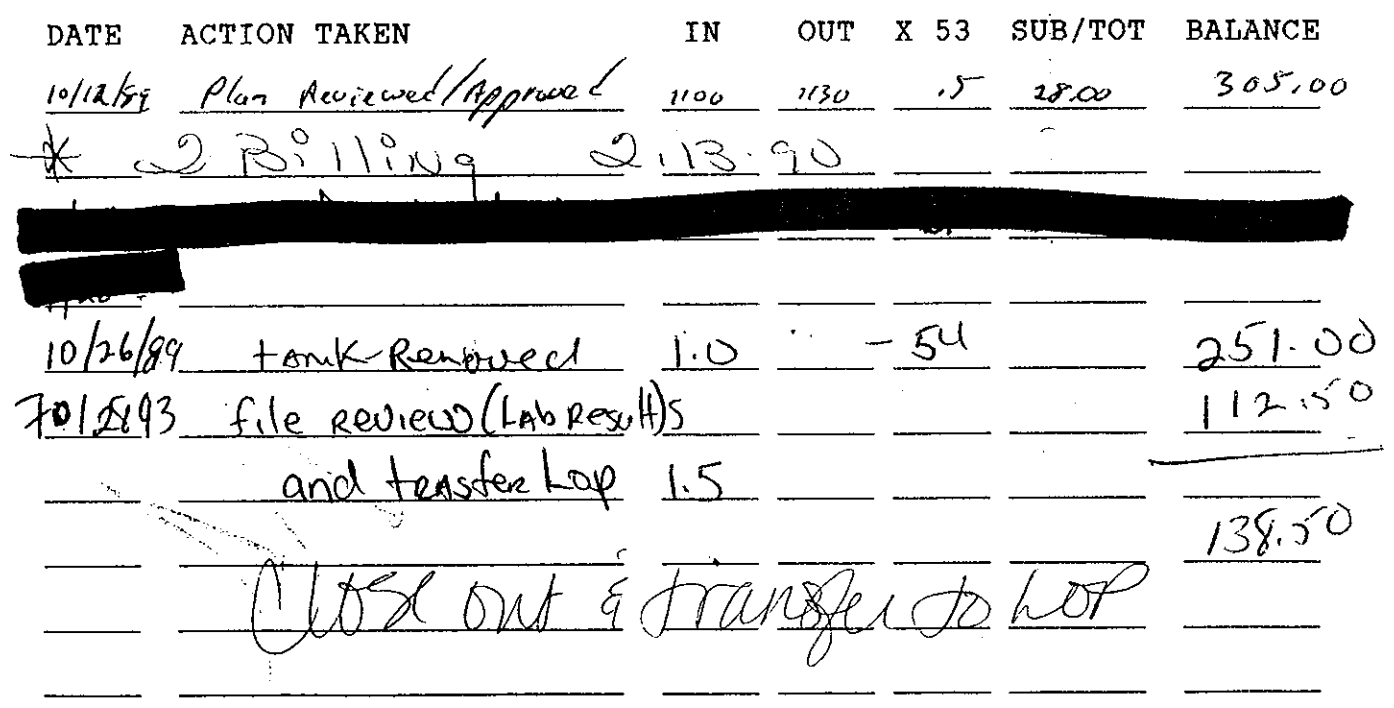 DATE ACTION TAKEN IN OUT X 53 SUB/TOT BALANCE
10/12/89 Plan Reviewed/Approved 1100 1130 .5 28.00 305.00
* 2 Billing 2.13.90
10/26/89 tank Removed 1.0 - 54 251.00
file Review (Lab Result)s 112.50
and trasfer Lop 1.5
138.50
Close out & transfer to LOP